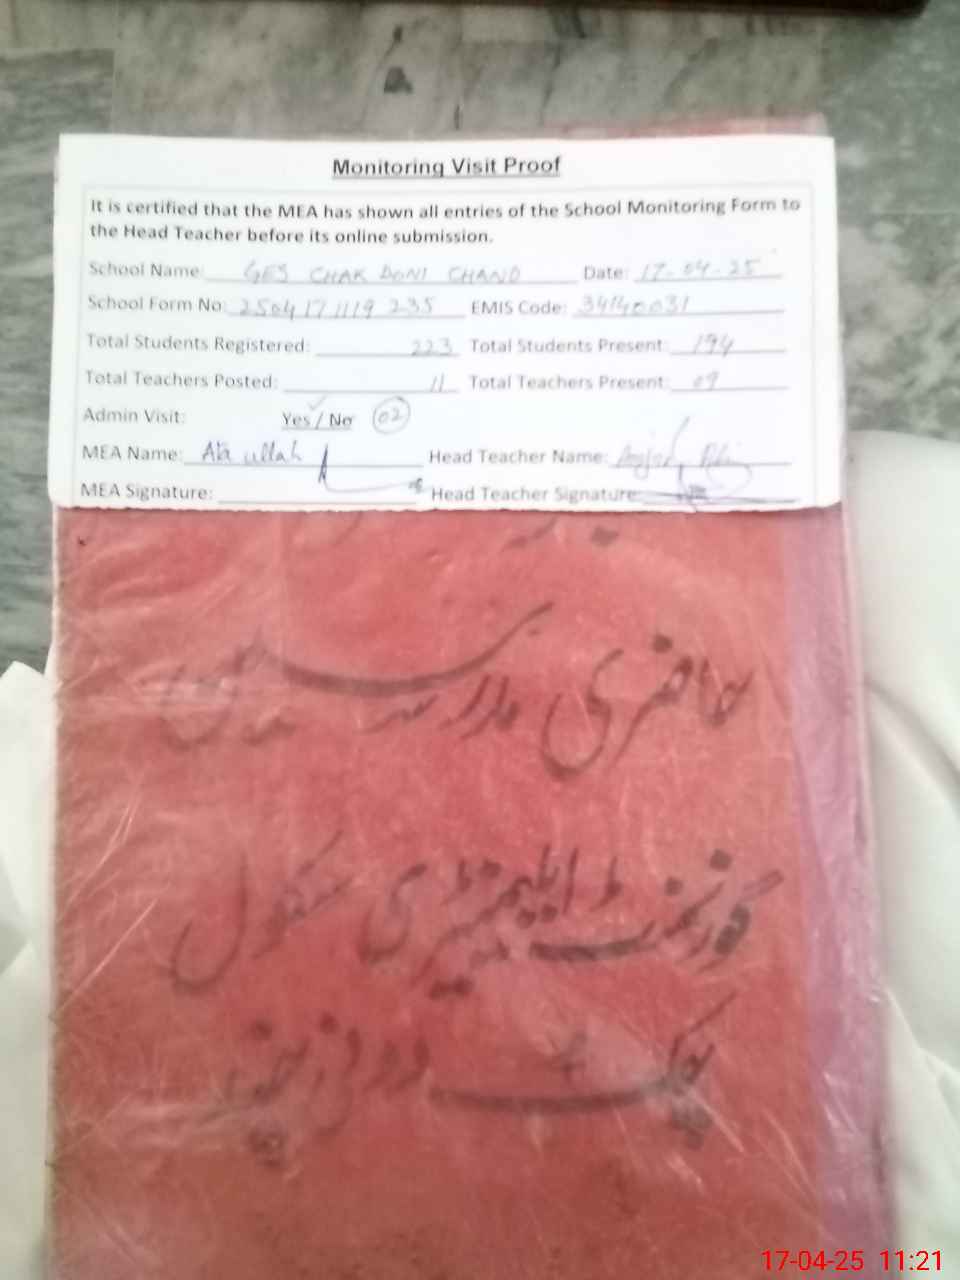 Monitoring Visit Proof
It is certified that the MEA has shown all entries of the School Monitoring Form to
the Head Teacher before its online submission.
School Name: GES CHAK DONI CHAND Date: 17-04-25
School Form No: 2504171119 235 EMIS Code: 34140031
Total Students Registered: 223 Total Students Present: 194
Total Teachers Posted: 11 Total Teachers Present: 09
Admin Visit: Yes / No 02
MEA Name: Ata ullah Head Teacher Name:
MEA Signature: Head Teacher Signature:
حاضری مدرسین
گورنمنٹ ایلیمنٹری سکول
چک دونی چند
17-04-25 11:21